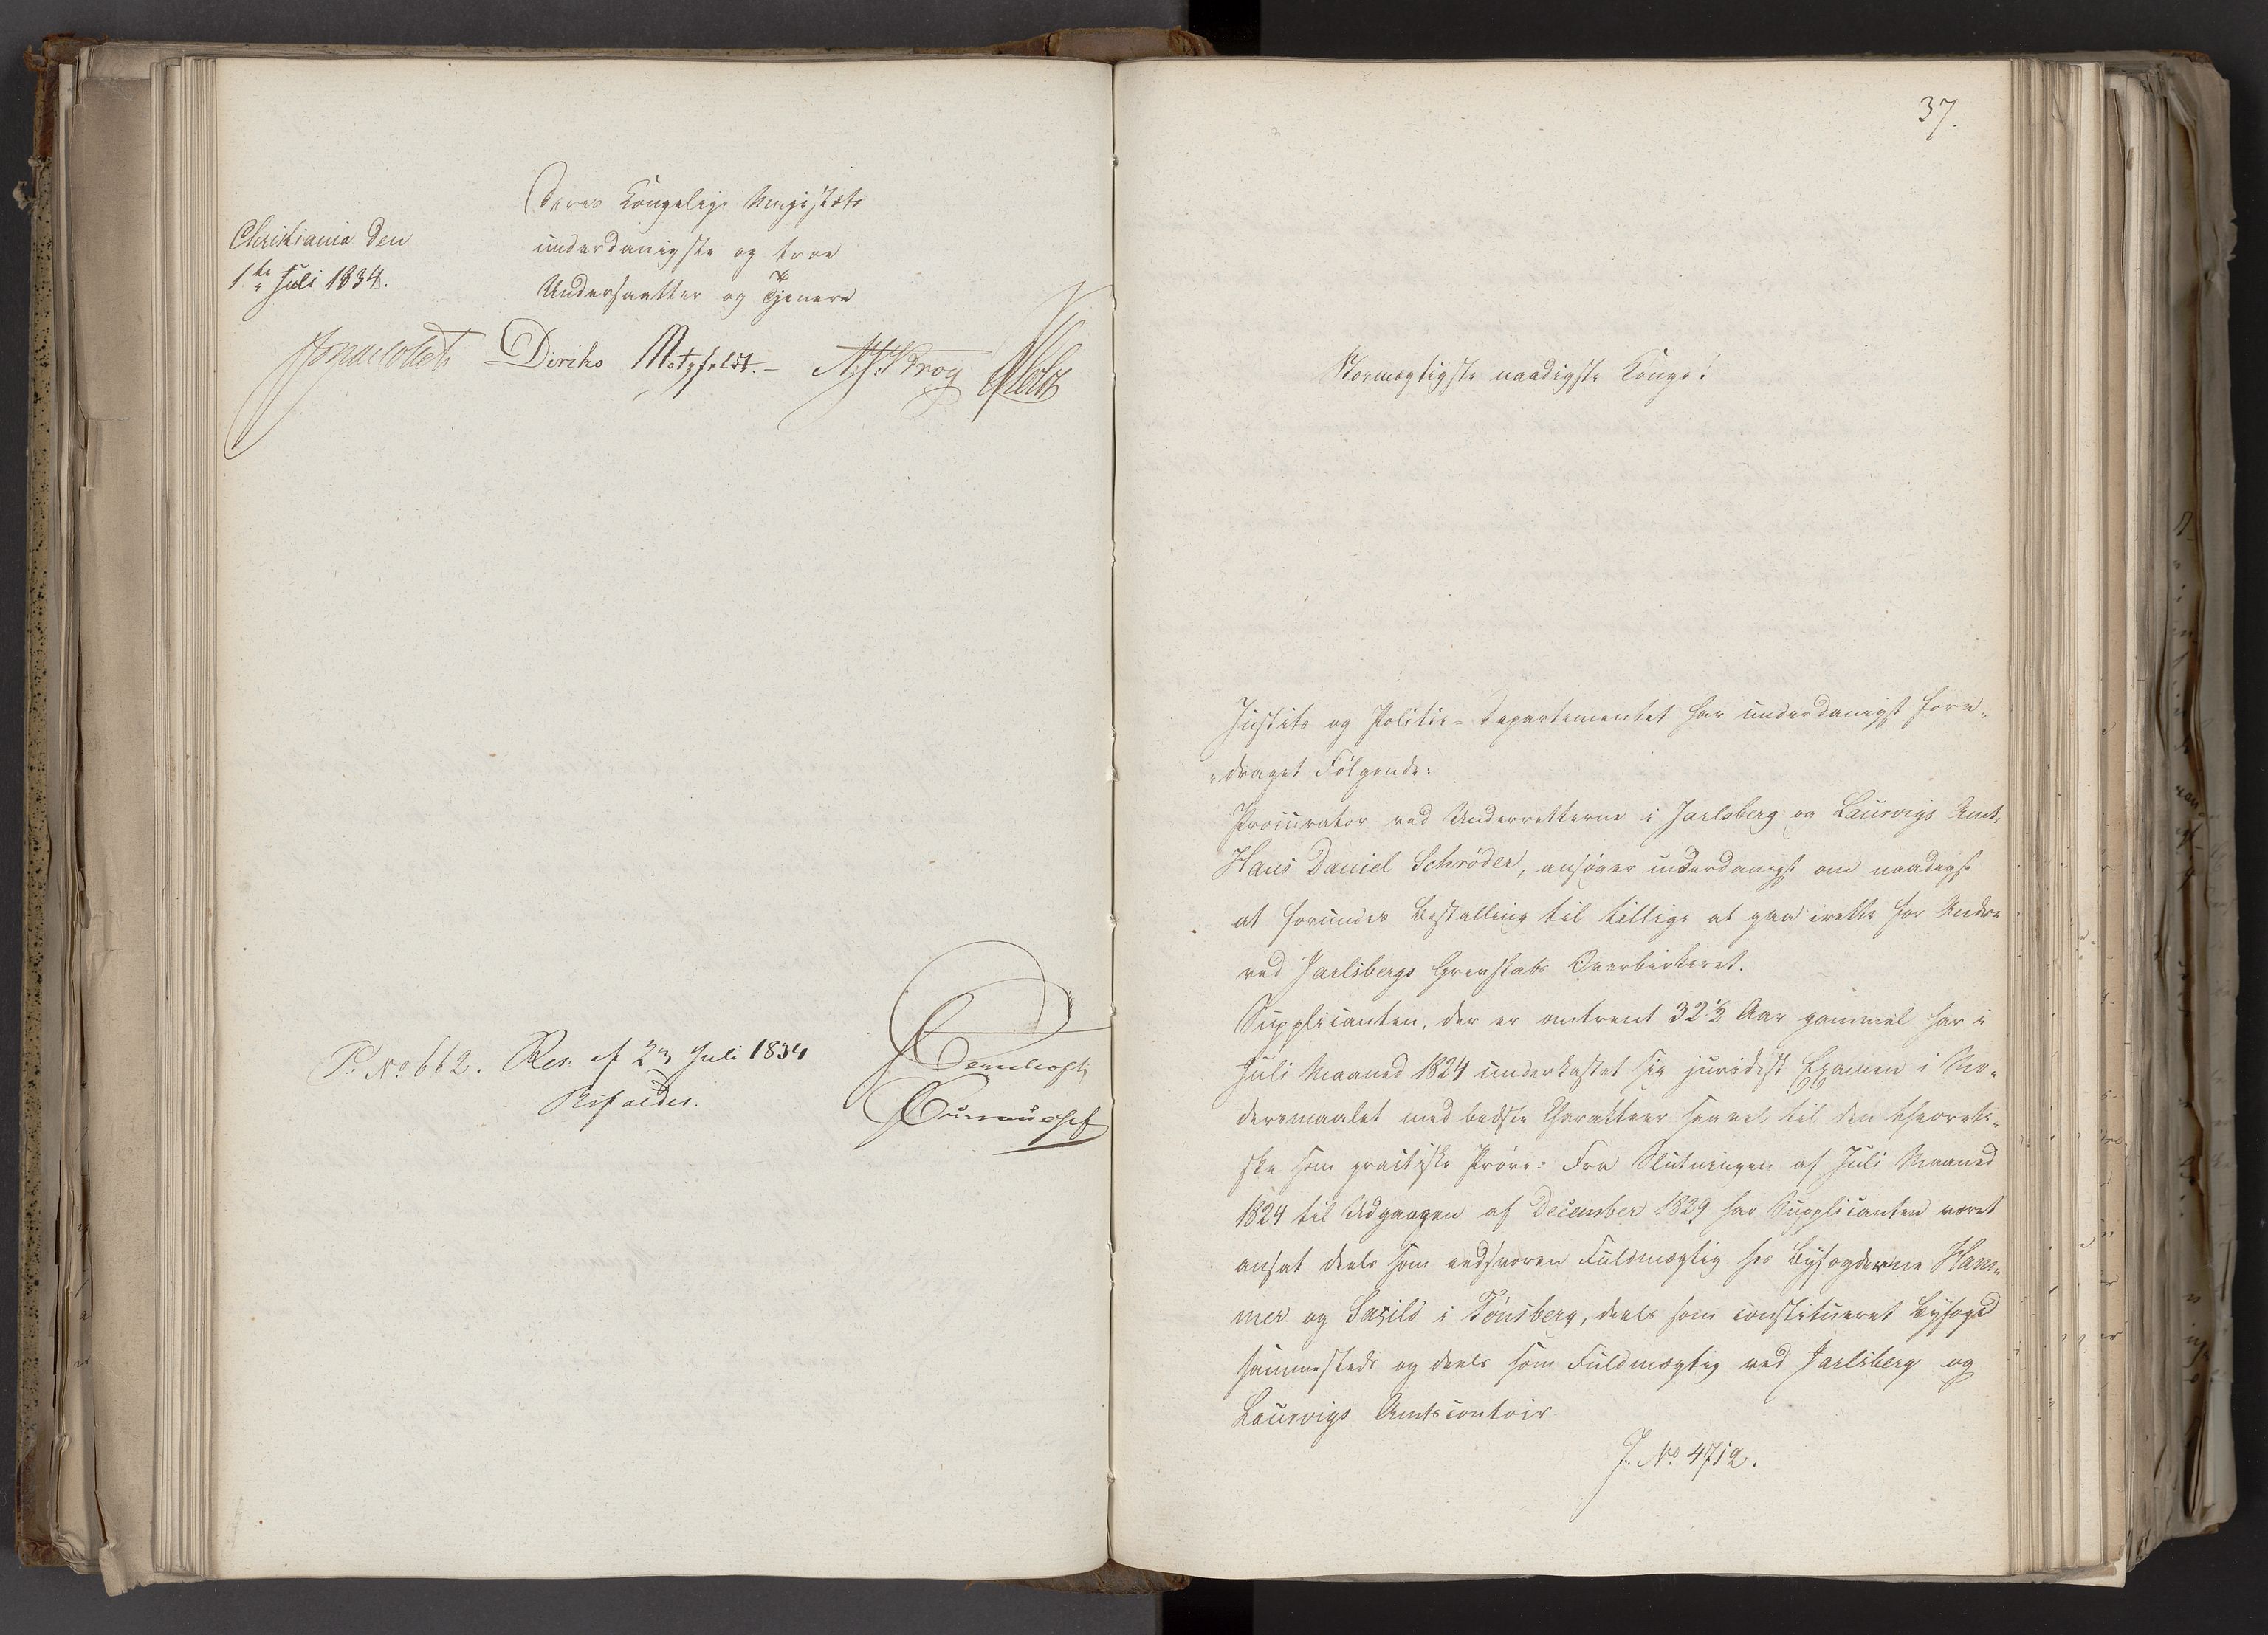 Deres Kongelige Majestæts
Christiania den
underdanigste og troe
1te Juli 1834.
Undersaatter og Tjenere
Diriks Motzfeldt. N. J. Krog Holst
P. No 662. Res. af 23 Juli 1834
Bifaldes.
37.
Stormægtigste naadigste Konge!
Justits og Politie-Departementet har underdanigst fore-
draget Følgende:
Procurator ved Underretterne i Jarlsberg og Laurvigs Amt,
Hans Daniel Schrøder, ansøger underdanigst om naadigst
at forundes Bestalling til tillige at gaa irette for Andre
ved Jarlsbergs Grevskabs Overbirkeret.
Supplicanten, der er omtrent 32½ Aar gammel har i
Juli Maaned 1824 underkastet sig juridisk Examen i Mo-
dersmaalet med bedste Charakteer saavel til den theoreti-
ske som practiske Prøve: Fra Slutningen af Juli Maaned
1824 til Udgangen af December 1829 har Supplicanten været
ansat deels som eedsvoren Fuldmægtig hos Byfogderne Ham-
mer og Saxild i Tønsberg, deels som constitueret Byfoged
sammesteds og deels som Fuldmægtig ved Jarlsberg og
Laurvigs Amtscontoir.
J. No 4712.